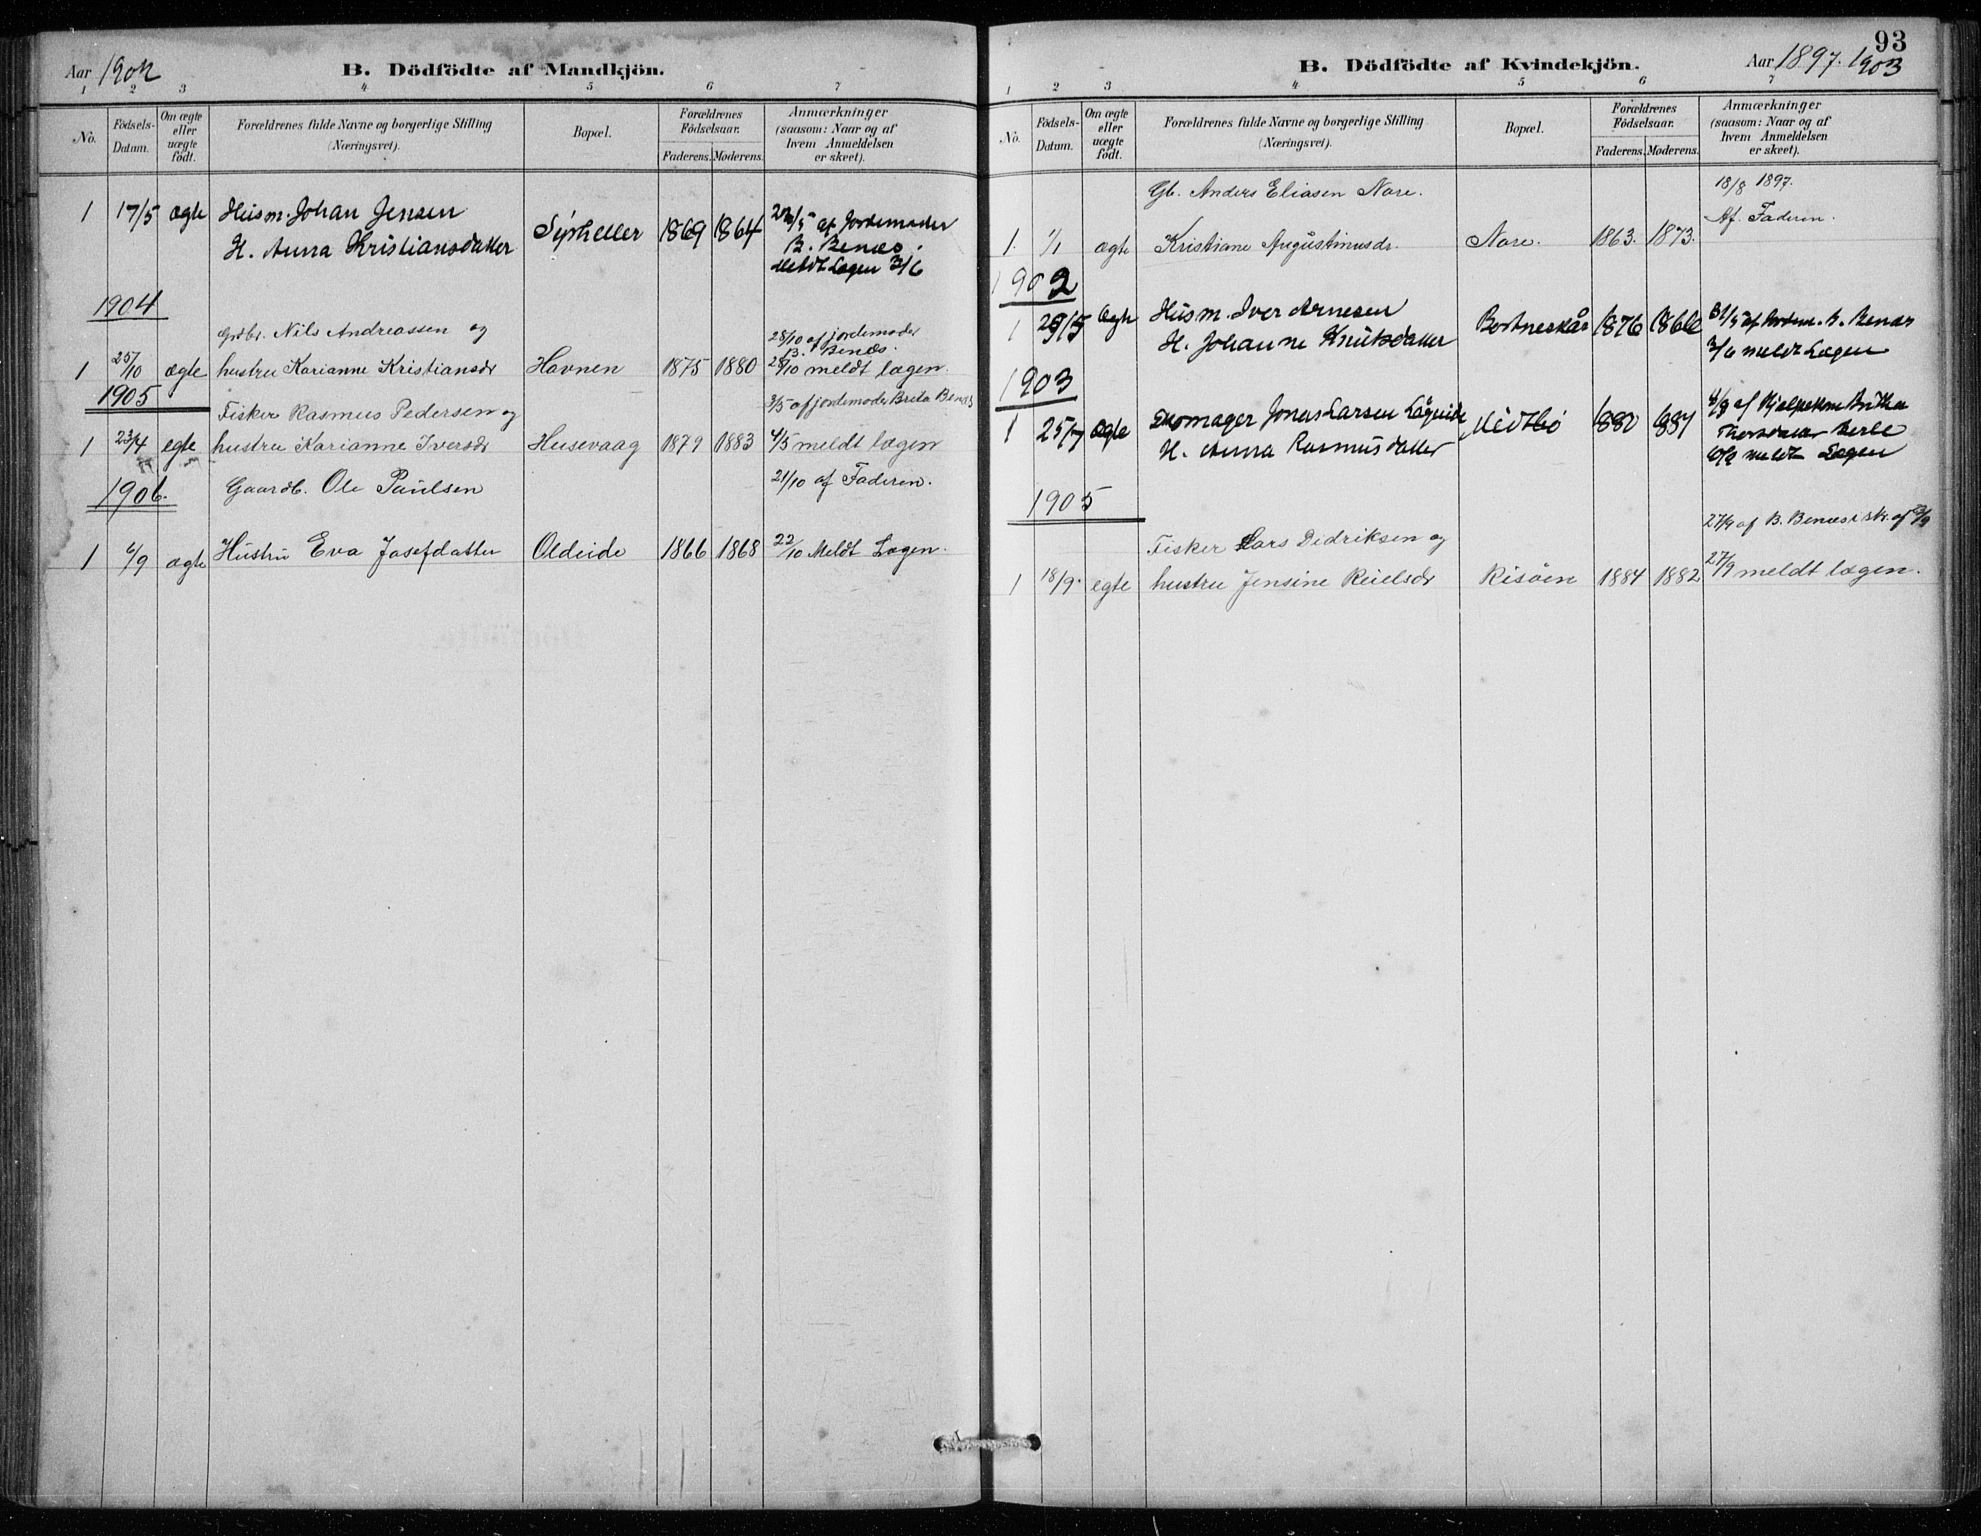 Aar 1902
B. Dödfödte af Mandkjön.
1 2 3 4 5 6 7
No.
Födsels-Datum.
Om ægte eller uægte født.
Forældrenes fulde Navne og borgerlige Stilling (Næringsvei).
Bopæl.
Forældrenes Födselsaar.
Faderens. Moderens.
Anmærkninger (saasom: Naar og af hvem Anmeldelsen er skeet).
1 17/5 ægte Husm. Johan Jensen
H. Anna Kristiansdatter Sörheller 1869 1864
af Jordemoder
B. Benæs.
Meldt Lægen 3/6
1904
Grdbr. Nils Andreassen og
28/10 af jordemoder
B. Benæs.
1 25/10 ægte hustru Karianne Kristiansdr Havnen 1875 1880 28/10 meldt lægen.
1905
Fisker Rasmus Pedersen og
3/5 af jordemoder Brita Benæs
1 23/4 egte hustru Karianne Iversdr Husevaag 1879 1883 4/5 meldt lægen
1906.
Gaardb. Ole Paulsen
21/10 af Faderen.
1 6/9 ægte Hustru Eva Josefdatter Oldeide 1866 1868 22/10 Meldt Lægen.
93
B. Dödfödte af Kvindekjön.
Aar 1897. 1903
1 2 3 4 5 6 7
No.
Födsels-Datum.
Om ægte eller uægte født.
Forældrenes fulde Navne og borgerlige Stilling (Næringsvei).
Bopæl.
Forældrenes Födselsaar.
Faderens. Moderens.
Anmærkninger (saasom: Naar og af hvem Anmeldelsen er skeet).
Gb. Anders Eliasen Nore.
18/8 1897.
Af Faderen.
1. 1/1 ægte Kristiane Augustinusdr. Nore. 1863. 1873.
1902
1 29/5 ægte Husm. Iver Arnesen
H. Johanne Knutsdatter Bortneskår 1876 1866
31/5 af Jordm. B. Benæs
3/6 meldt Lægen
1903
1 25/7 ægte Skomager Jonas Larsen
H. Anna Rasmusdatter Midtbö 1880 1881
4/9 af Hjelpekone
meldt Lægen
1905
Fisker Lars Didriksen og
27/9 af B. Benæs
1 18/9. egte hustru Jensine Reielsdr Risöen 1884 1882 27/9 meldt lægen.